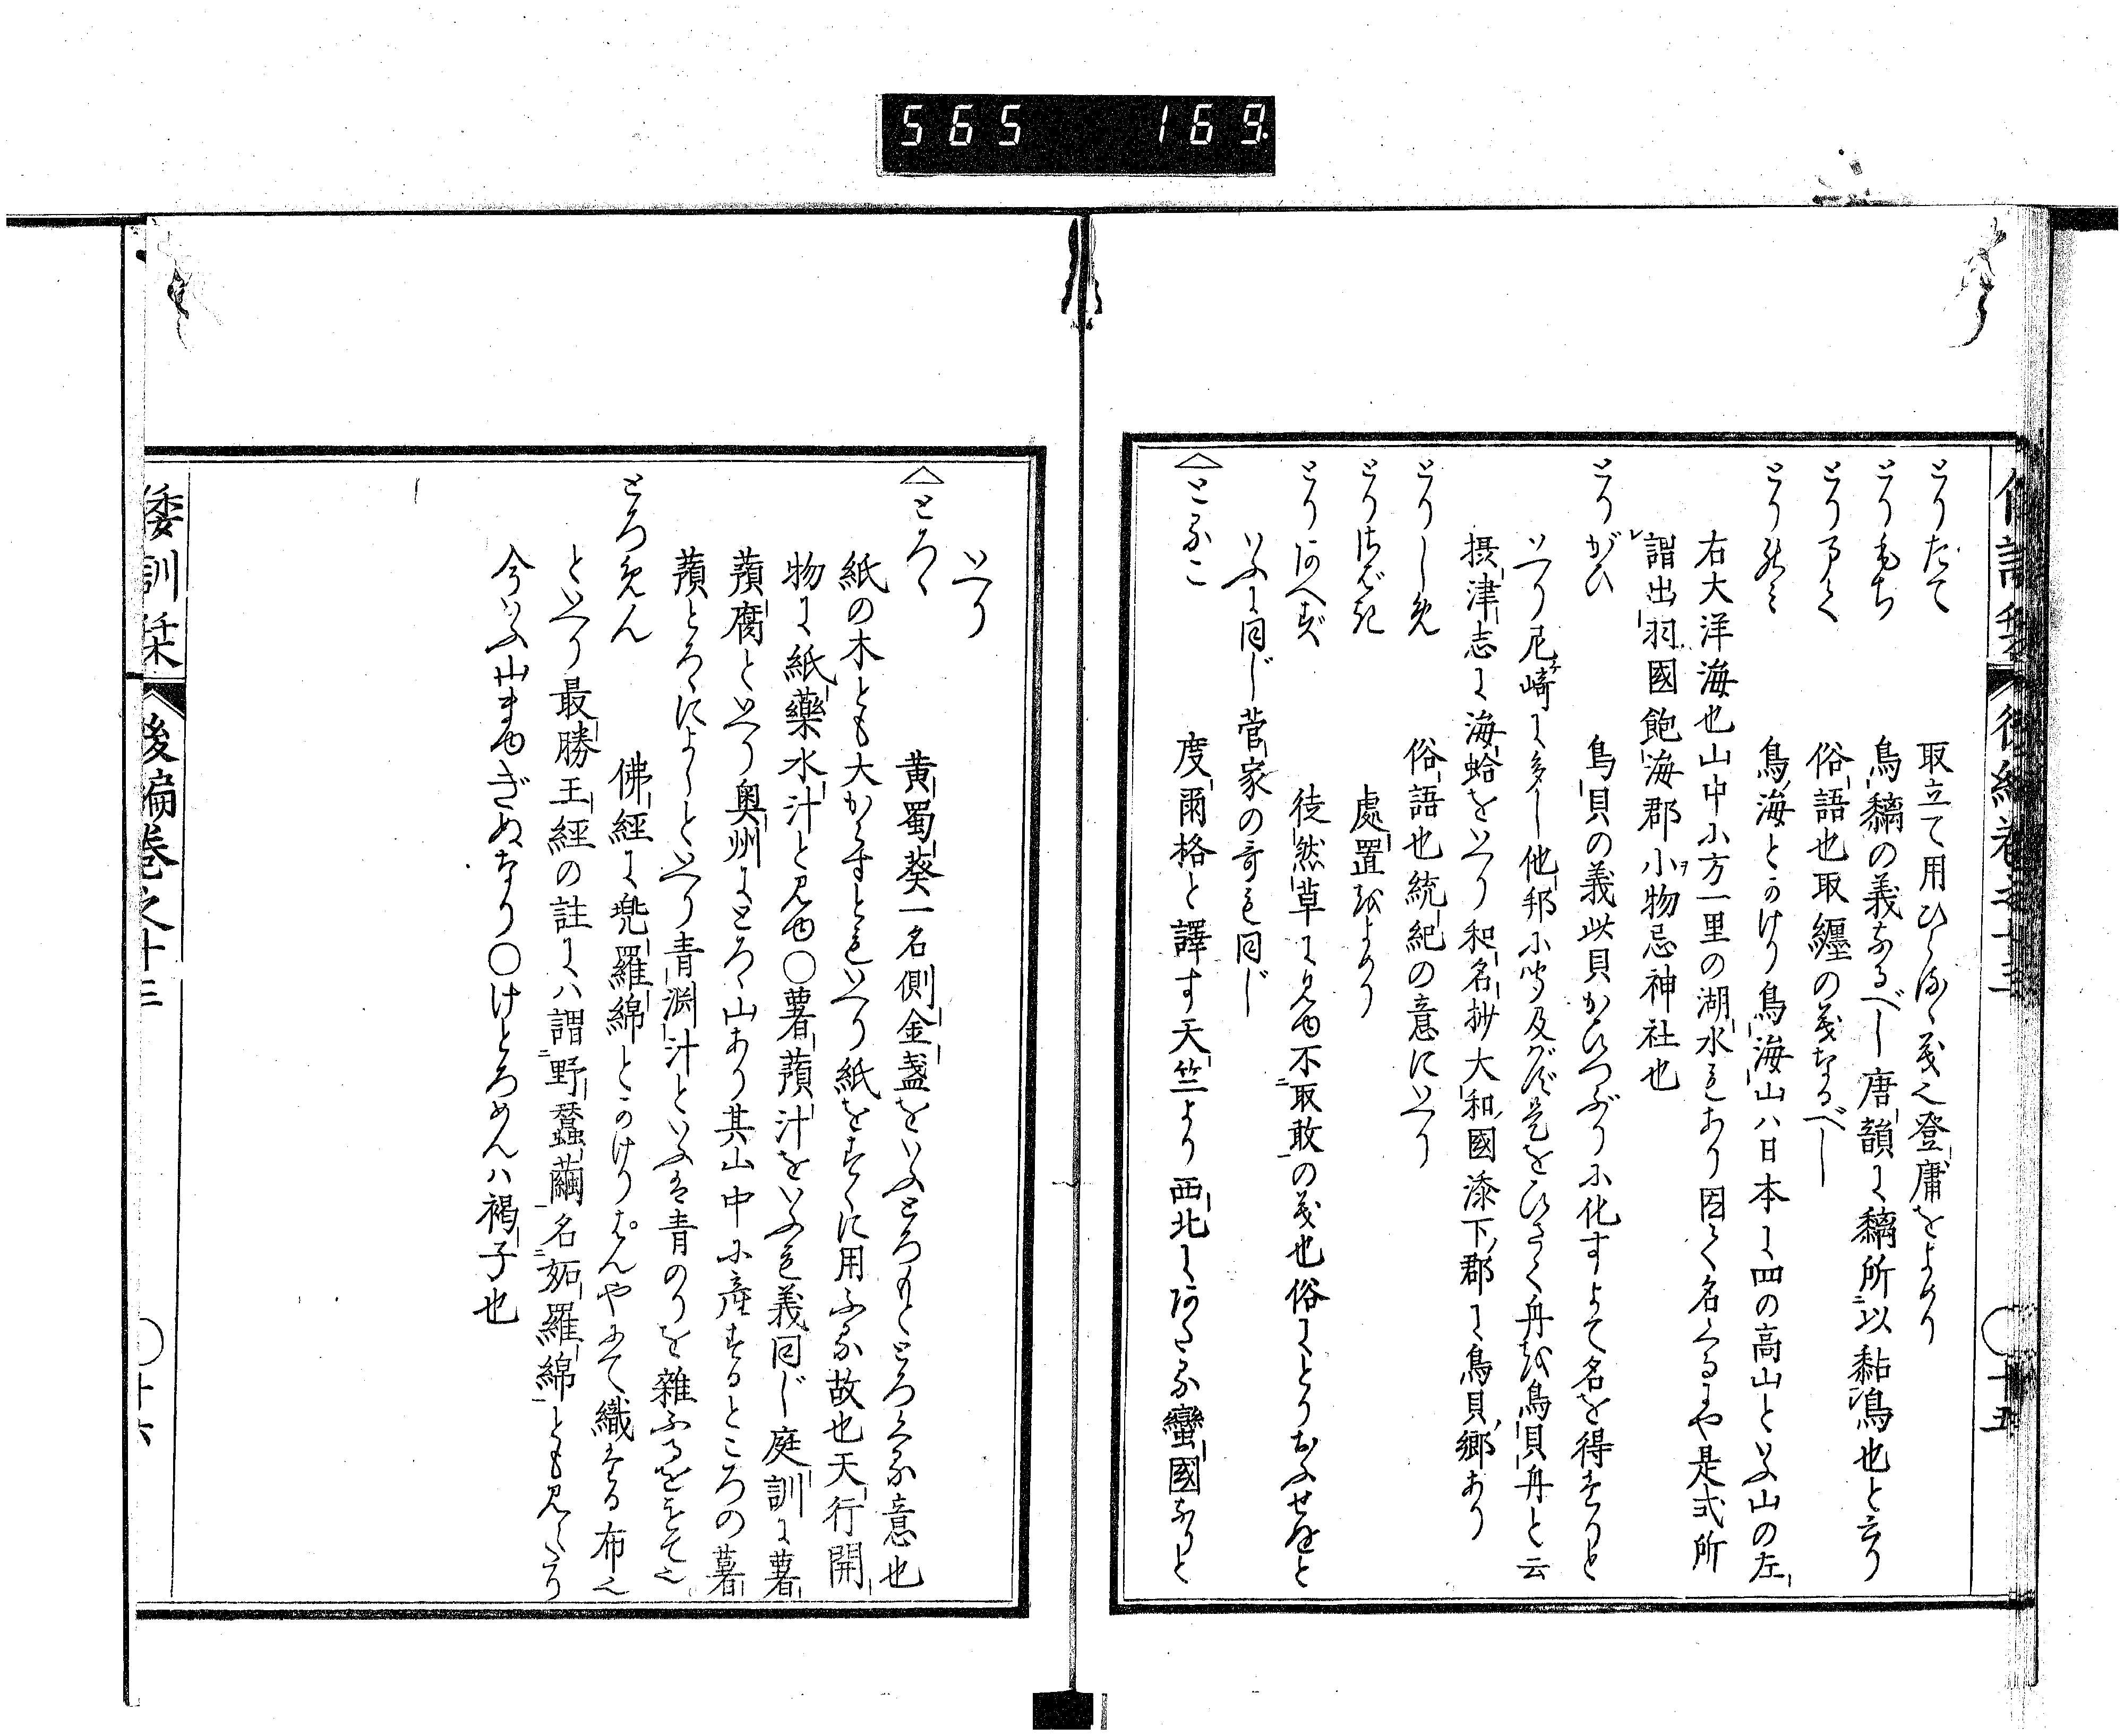 565 169
とりたて　取立て用ひらるゝ義也登庸をよめり
とりもち　鳥黐の義なるべし唐韻に黐所以黏鳥也と云り
とりまく　俗語也取纏の義なるべし
とりのミ　鳥海とかけり鳥海山ハ日本に四の高山といふ山の左
右大洋海也山中に方一里の湖水もあり因て名くるにや是式所
謂出羽國飽海郡小物忌神社也
とりがひ　鳥貝の義此貝かいつぶりに化すよて名を得たりと
いへり尼崎に多し他邦に聞及バず是をひさく舟を鳥貝舟と云
摂津志に海蛤をいへり和名抄大和國添下郡に鳥貝郷あり
とりしめ　俗語也統紀の意にいへり
とりさばき　處置をよめり
とりあへず　徒然草に見ゆ不取敢の義也俗にとりあふせぬと
いふに同じ菅家の哥も同じ
△とるこ　度爾格と譯す天竺より西北にあたる蠻國なりと
いへり
△とろゝ　黄蜀葵一名側金盞をいふとろもとろくる意也
紙の木とも大からすともいへり紙をすくに用ふる故也天行開
物に紙藥水汁と見ゆ○薯蕷汁をいふも義同じ庭訓に薯
蕷腐といへり奥州にとろゝ山あり其山中に産するところの薯
蕷とろゝによしといへり青淵汁といふは青のりを雜ふるをもて也
とろめん　佛經に兜羅綿とかけりぱんやにて織たる布也
といへり最勝王經の註にハ謂野蠶繭名妬羅綿とも見えたり
今いふ山まゆぎぬなり○けとろめんハ褐子也
倭訓栞　後編巻之十三　○十六